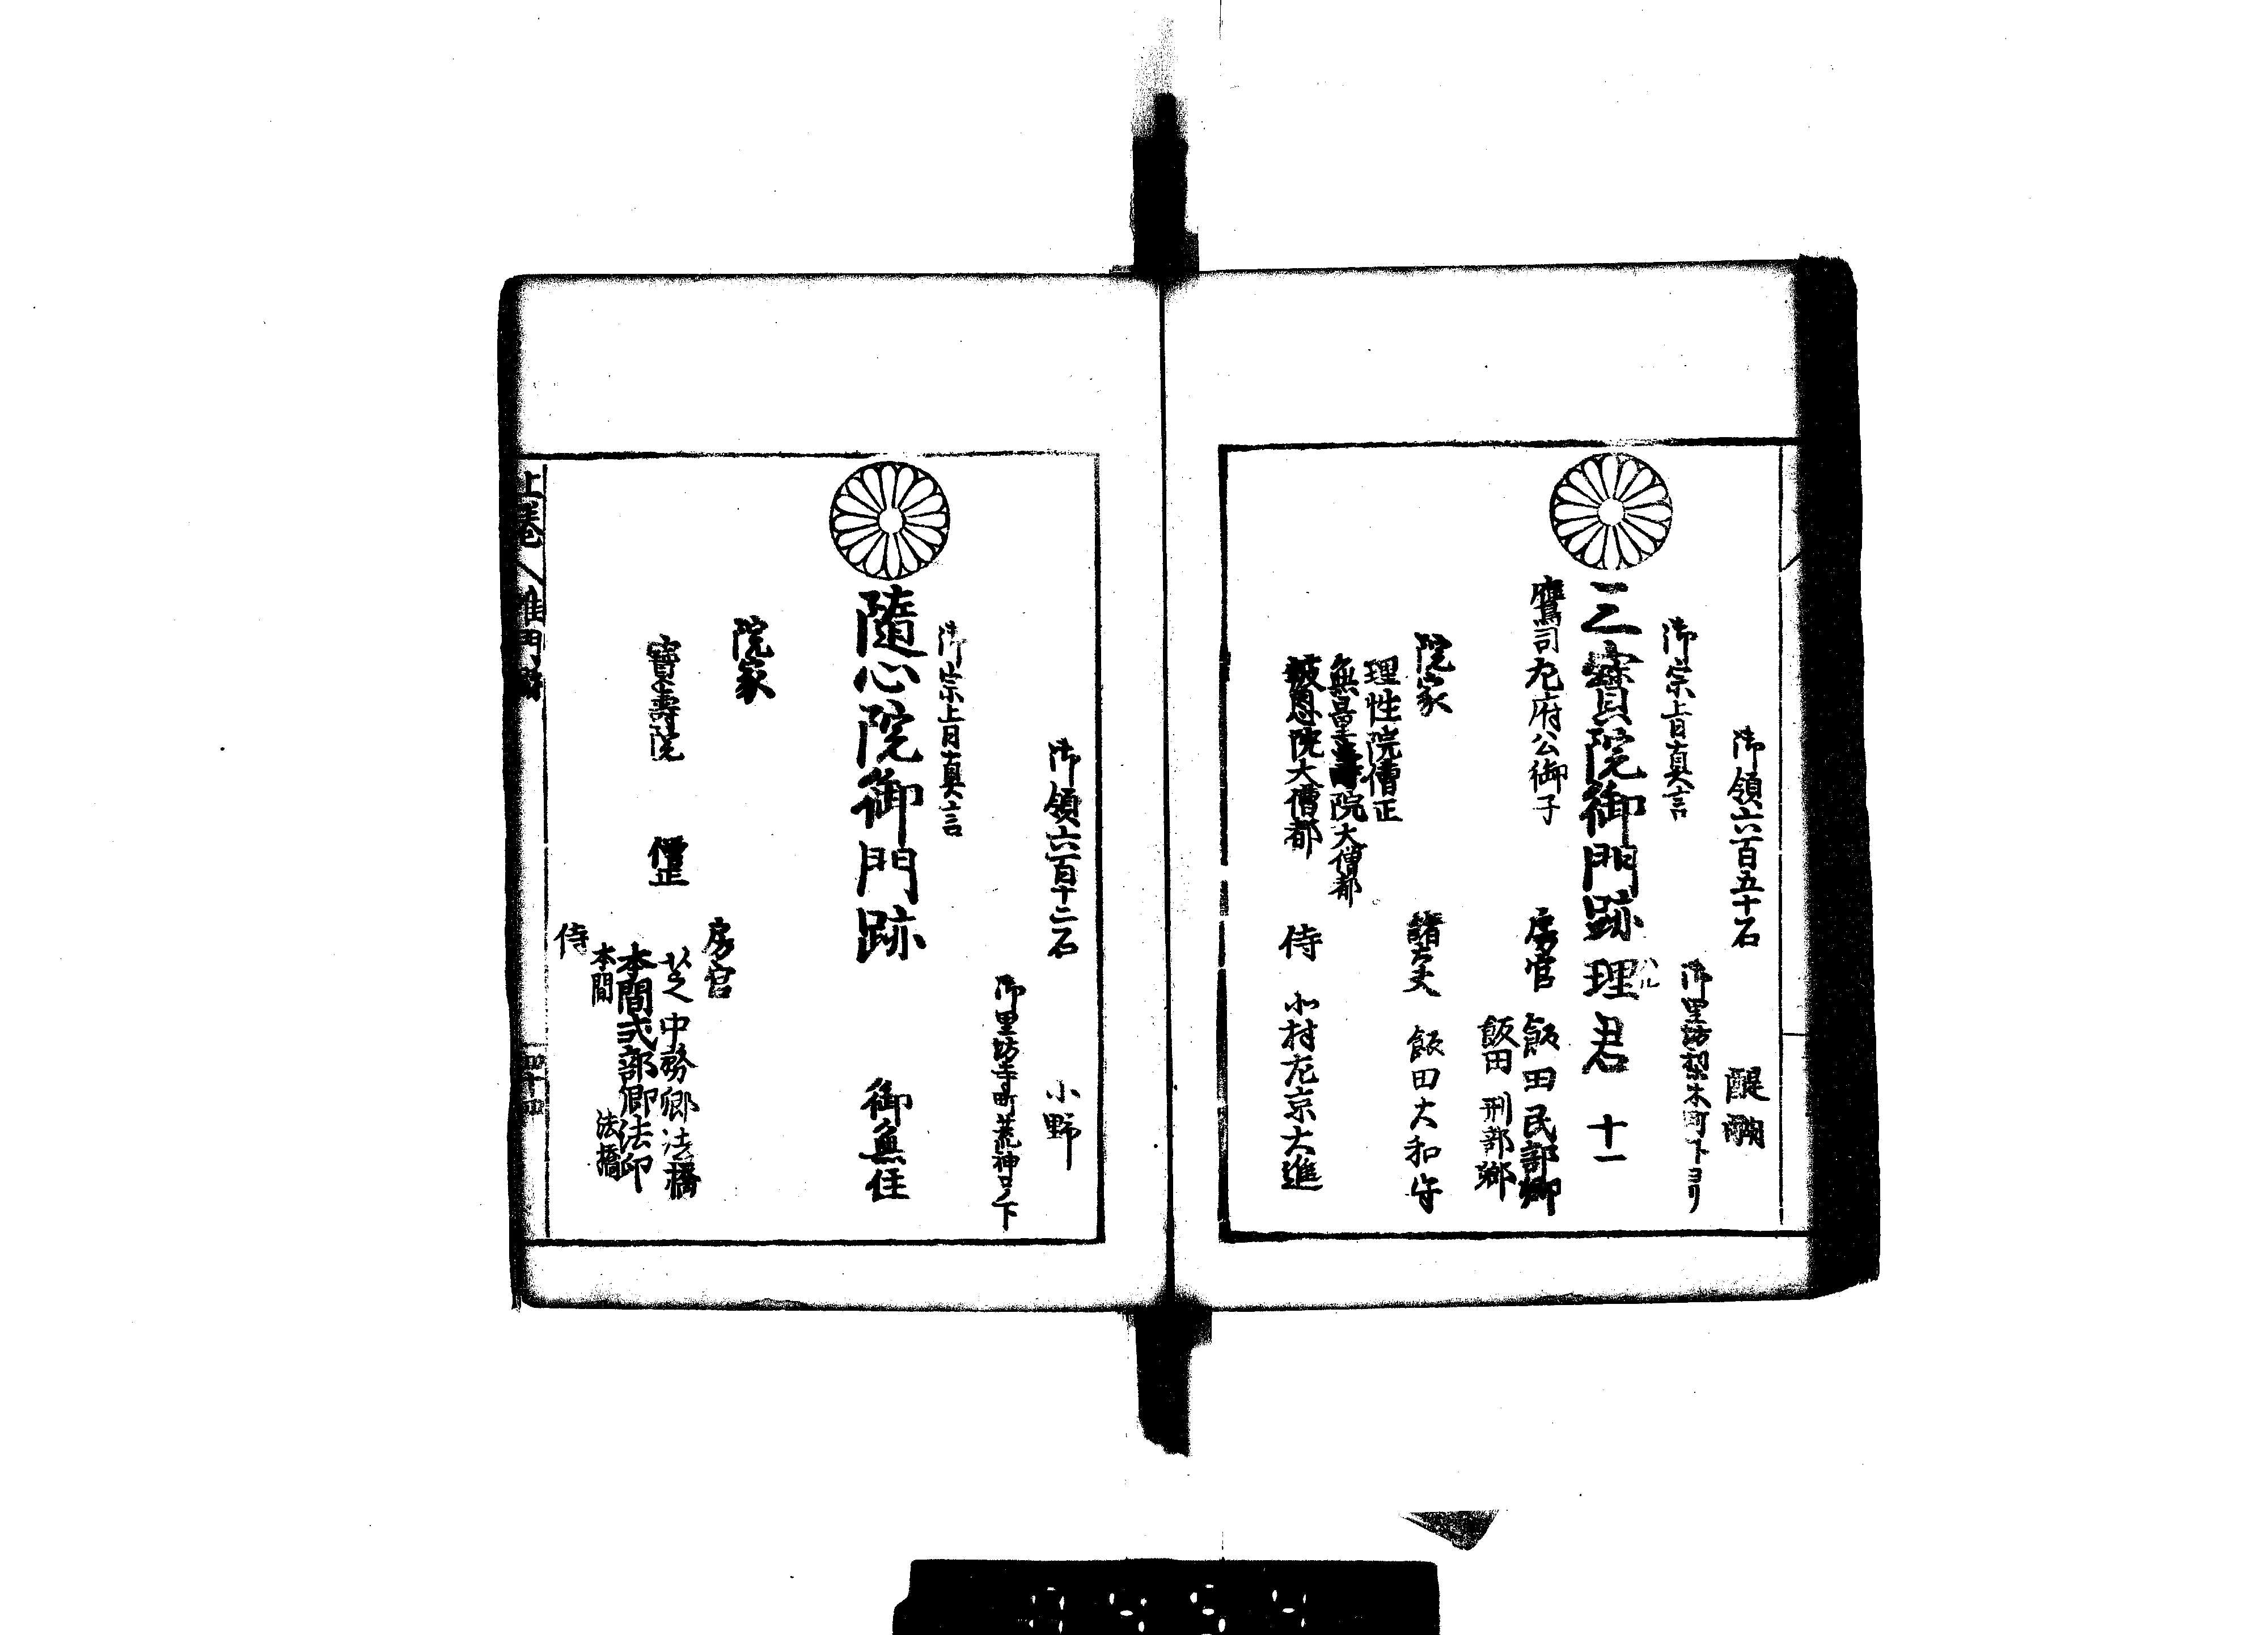 御領六百五十石
醍醐
御宗旨真言
御里坊梨木町下ヨリ
三寳院御門跡
理君 十一
鷹司左府公御子
房官 飯田民部卿
飯田刑部卿
院家
理性院僧正
無量壽院大僧都
報恩院大僧都
諸大夫 飯田大和守
侍 北村左京大進
御領六百十二石
小野
御里坊寺町荒神口ノ下
御宗旨真言
隨心院御門跡
御無住
院家
寳壽院 僧正
房官
芝中務卿法橋
本間式部卿法印
本間 法橋
侍
上巻
准門跡
四十四